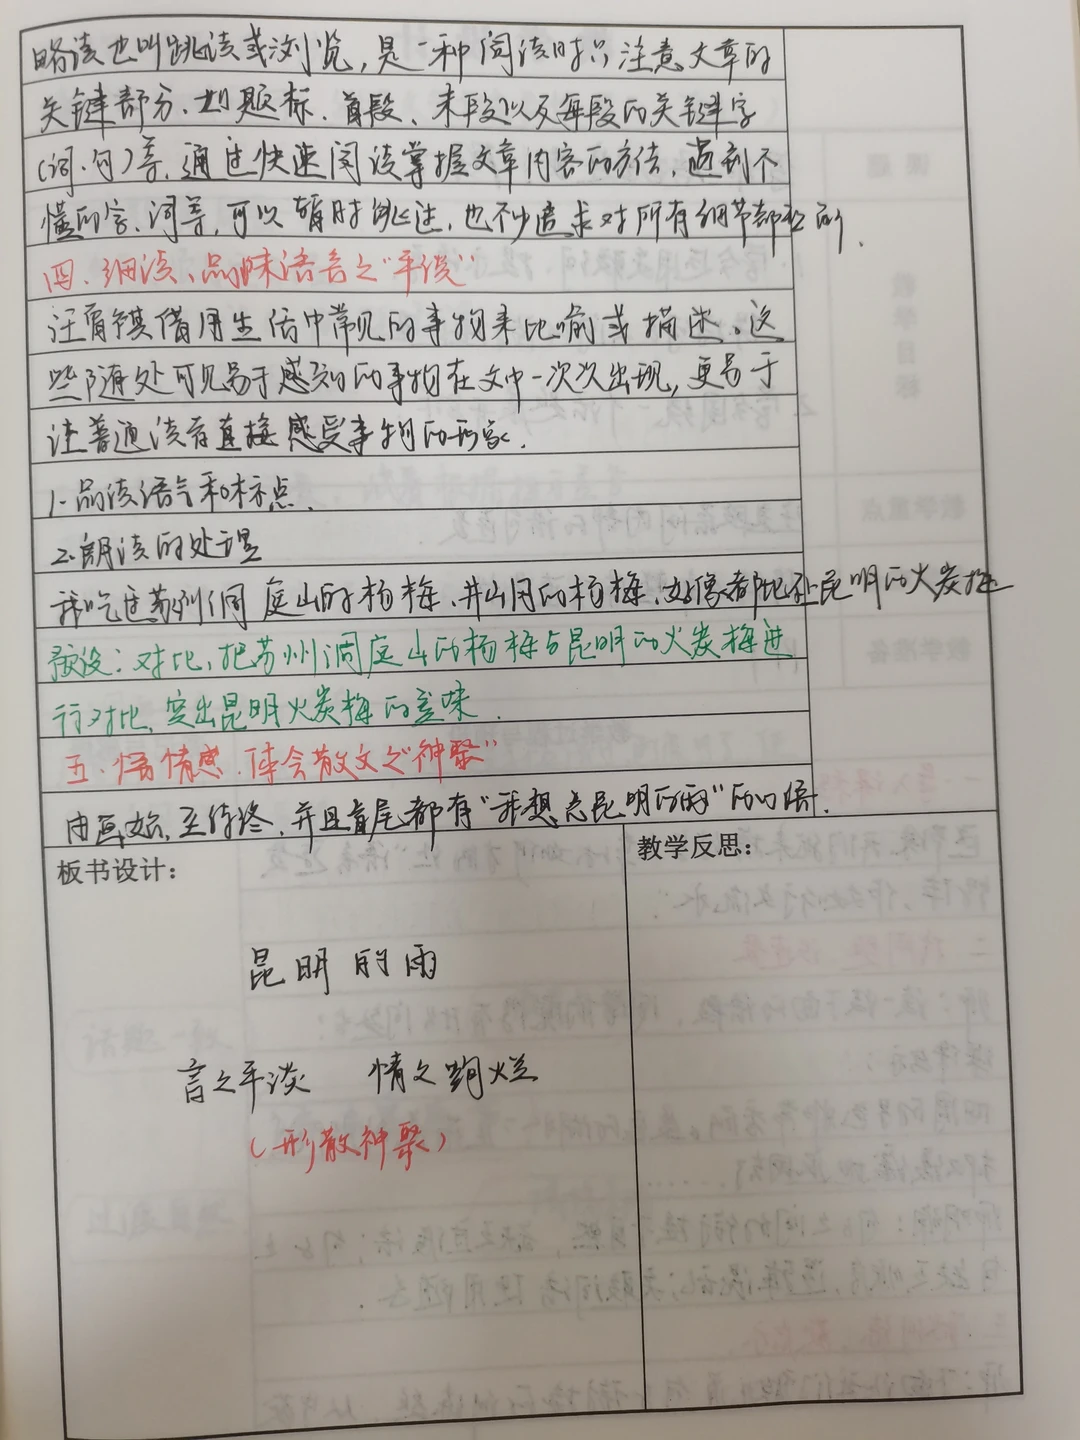 略读也叫跳读或浏览，是一种阅读时只注意文章的
关键部分、如题标、首段、末段以及每段的关键字
(词、句)等，通过快速阅读掌握文章内容的方法，遇到不
懂的字、词等，可以暂时跳过，也不必追求对所有细节都
四、细读、品味语言之"平淡"
汪曾祺借用生活中常见的事物来比喻或描述、这
些随处可见易于感知的事物在文中一次次出现，更易于
让普通读者直接感受事物的形象.
1.品读语气和标点.
2.朗读的处理
我吃过苏州洞庭山的杨梅、井山冈的杨梅、好像都比不上昆明的火炭梅
预设：对比，把苏州洞庭山的杨梅与昆明的火炭梅进
行对比，突出昆明火炭梅的意味.
五、悟情感、体会散文之"神聚"
由画始，至诗终，并且首尾都有"我想念昆明的雨"的
板书设计：
教学反思：
昆明的雨
言之平淡 情之绚烂
(形散神聚)